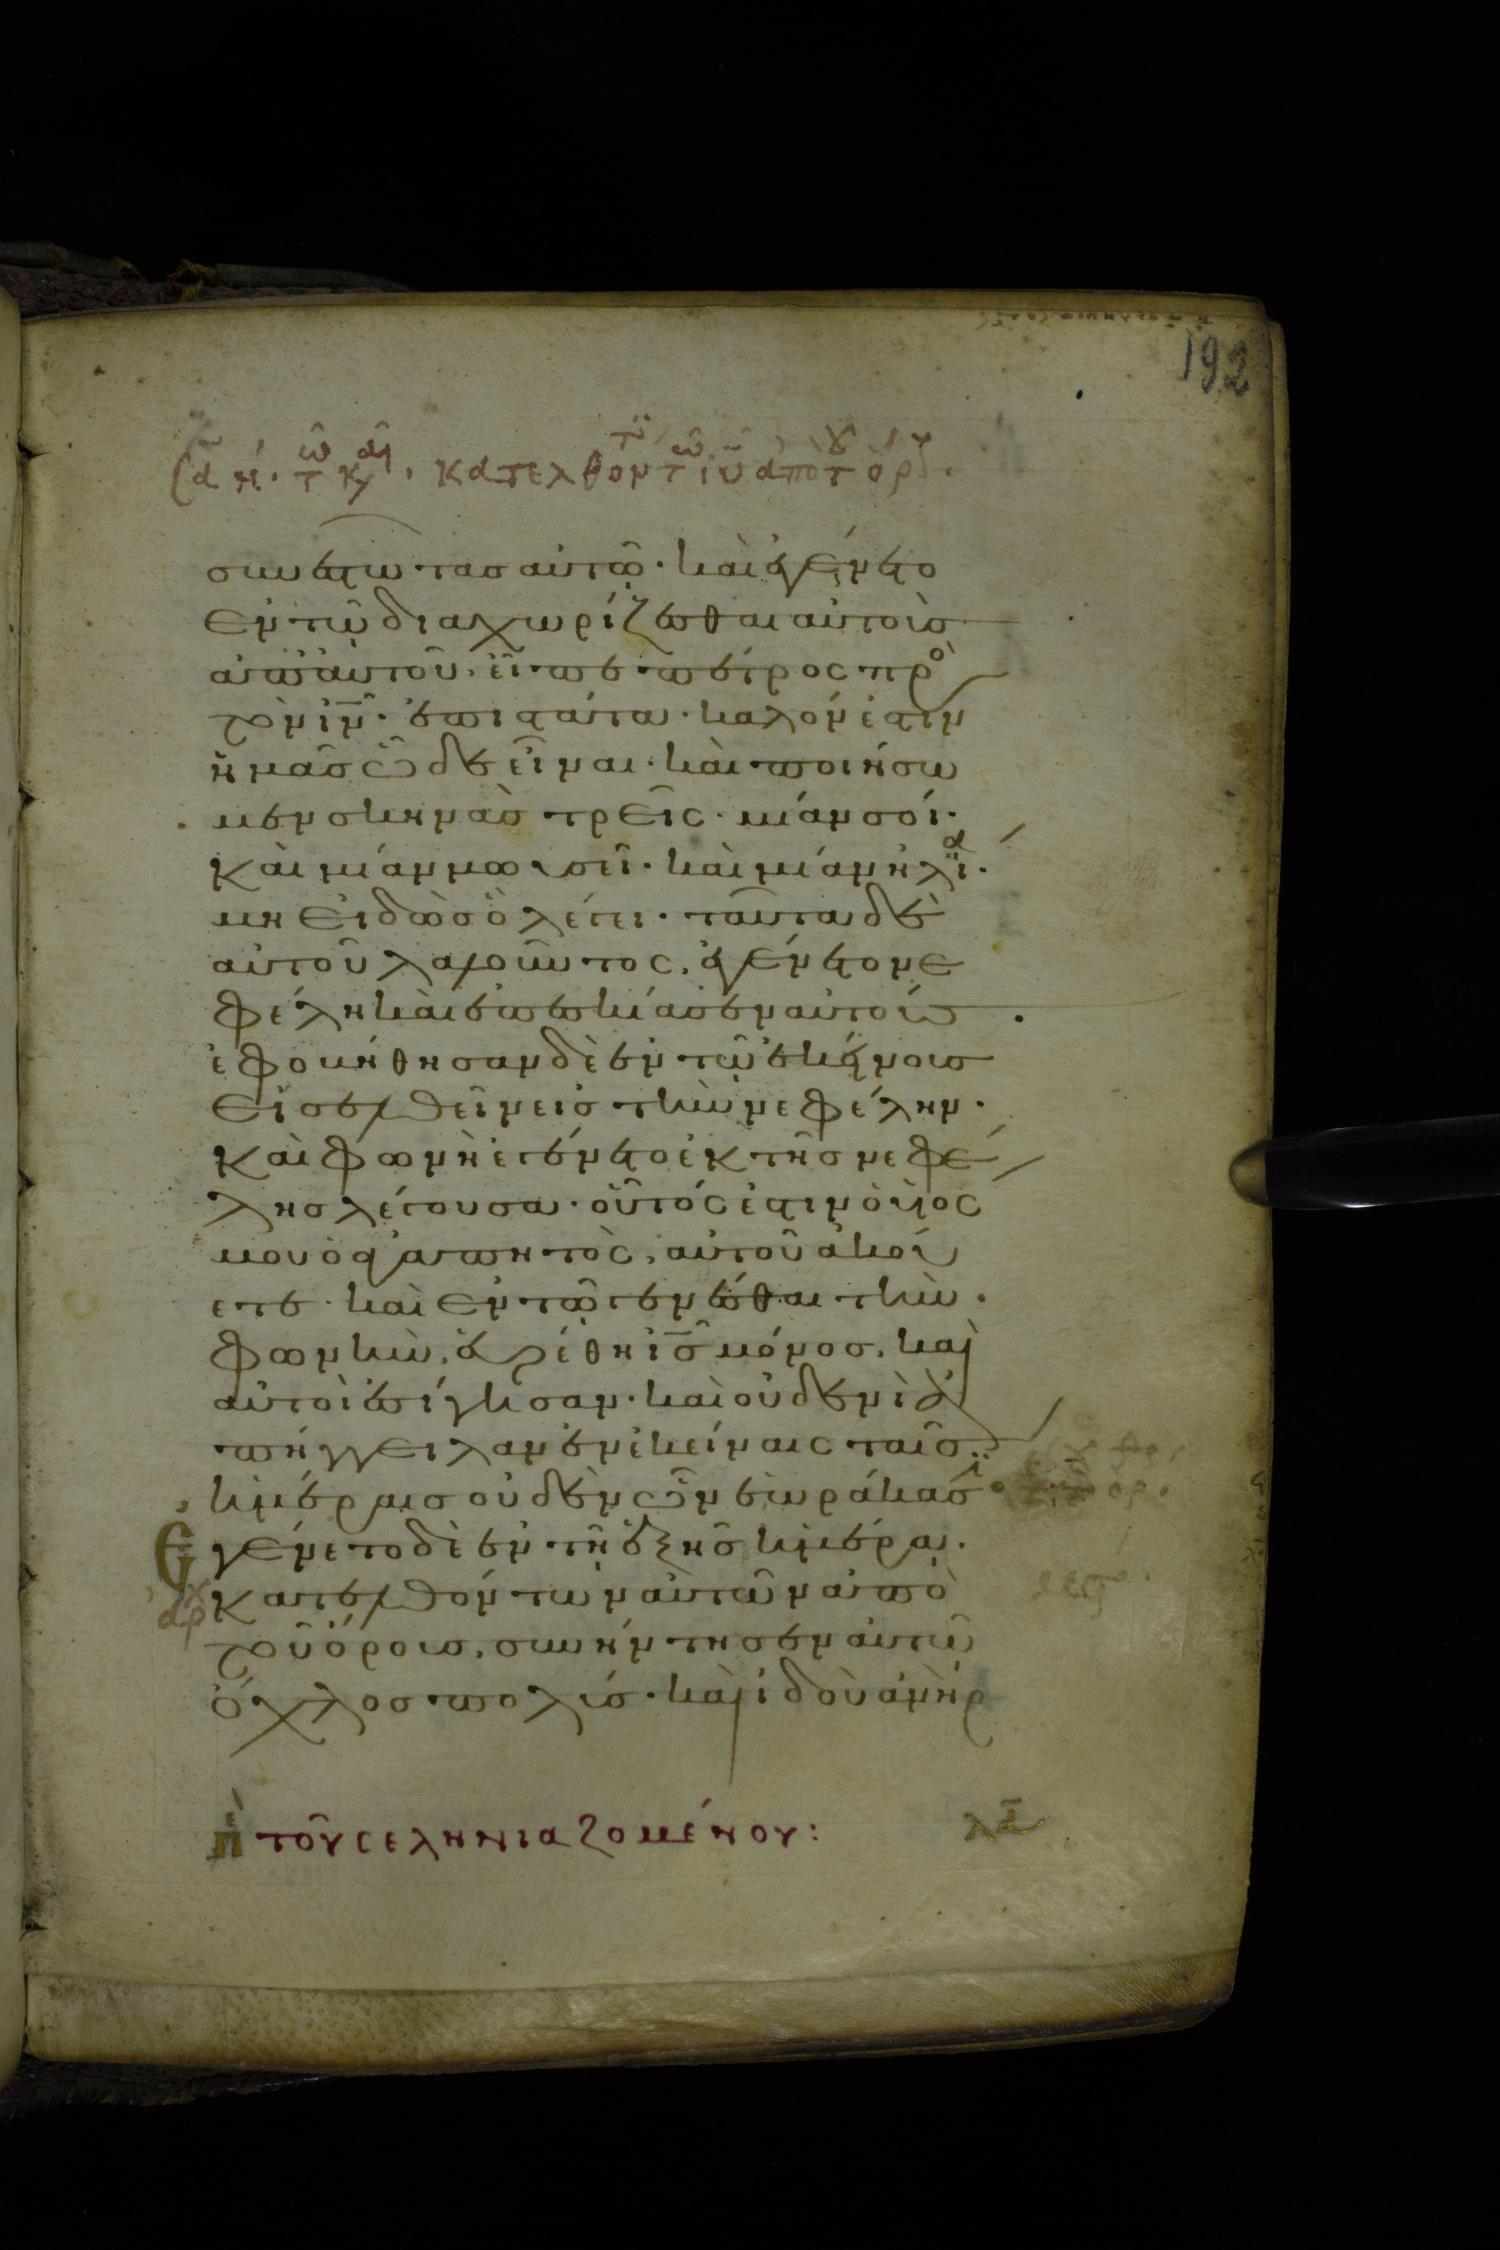 192
κατελθόντ ἰῦ ἀπὸ τ ὄρ
συνεστῶτας αὐτῶ· καὶ ἐγένετο
ἐν τῶ διαχωρίζεσθαι αὐτοὺς
ἀπ' αὐτοῦ, εἶπε πέτρος πρὸ
τὸν ἰν· ἐπιστάτα· καλόν ἐστιν
ἡμᾶς ὧδε εἶναι· καὶ ποιήσω
μεν σκηνὰς τρεῖς· μίαν σοί·
καὶ μίαν μωυσεῖ· καὶ μίαν ἠλία·
μὴ εἰδὼς ὃ λέγει· ταῦτα δὲ
αὐτοῦ λαλοῦντος, ἐγένετο νε
φέλη καὶ ἐπεσκίασεν αὐτούς
ἐφοβήθησαν δὲ ἐν τῶ ἐκείνους
εἰσελθεῖν εἰς τὴν νεφέλην·
καὶ φωνὴ ἐγένετο ἐκ τῆς νεφέ
λης λέγουσα· οὗτός ἐστιν ὁ υἱος
μου ὁ ἀγαπητὸς, αὐτοῦ ἀκού
ετε· καὶ ἐν τῶ γενέσθαι τὴν·
φωνὴν, εὑρέθη ἰς μόνος, καὶ
αὐτοὶ ἐσίγησαν· καὶ οὐδενὶ ἀ
πήγγειλαν ἐν ἐκείναις ταῖς
ἡμέραις οὐδὲν ὧν ἑωράκασϊ
Ἐγένετο δὲ ἐν τῆ ἑξῆς ἡμέρα·
κατελθόντων αὐτῶν ἀπὸ
τοῦ ὄρους, συνήντησεν αὐτῶ
ὄχλος πολύς· καὶ ἰδοὺ ἀνὴρ
πὲ τοῦ σεληνιαζομένου: λα